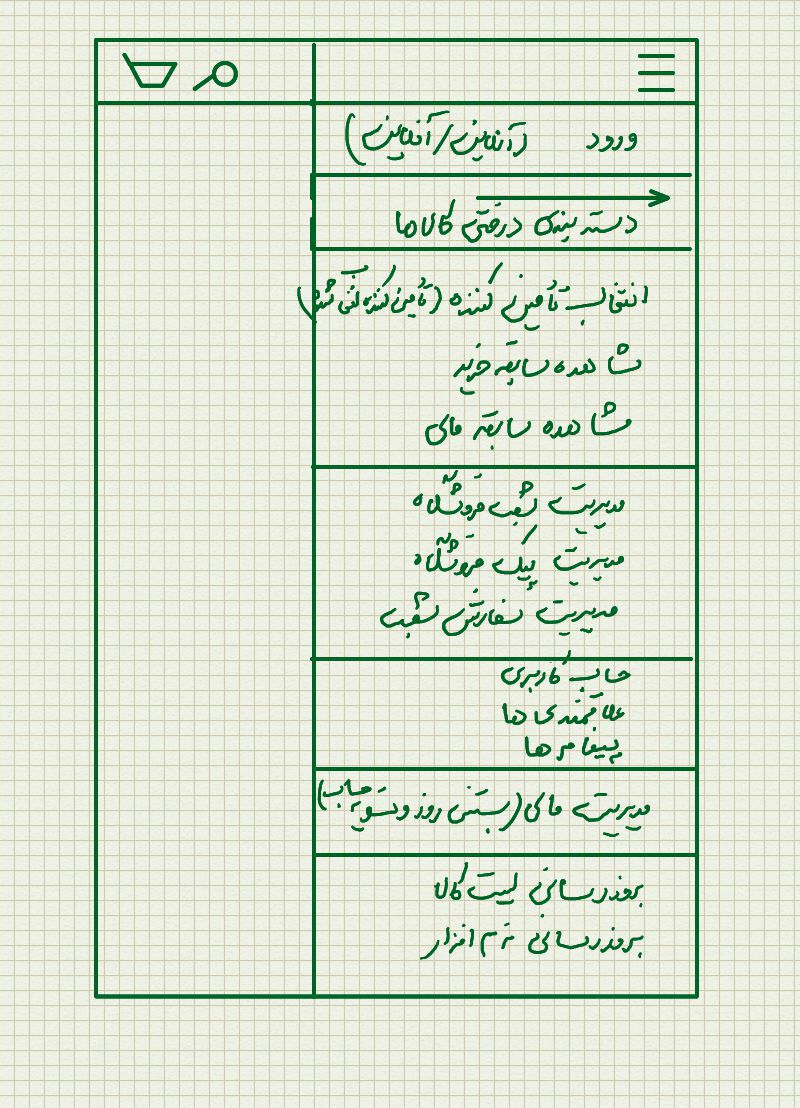 ورود (آنلاین/آفلاین)
دسته بندی درختی کالاها
انتخاب تأمین کننده (تأمین کننده انتخاب شده)
مشاهده سابقه خرید
مشاهده سابقه مالی
مدیریت شعب فروشگاه
مدیریت پیک فروشگاه
مدیریت سفارش شعب
حساب کاربری
علاقمندی ها
پیغام ها
مدیریت مالی (بستن روز و تسویه حساب)
بروزرسانی لیست کالا
بروزرسانی نرم افزار